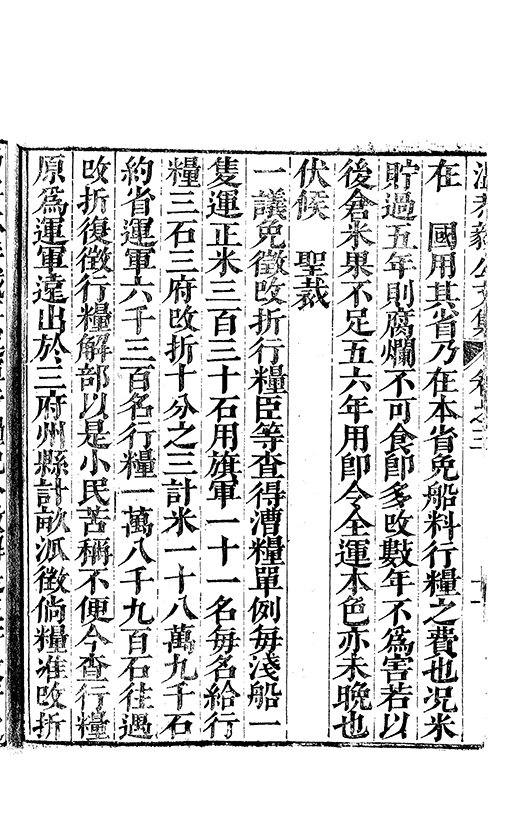 公文集 卷之三
在　國用其省乃在本省免船料行糧之費也况米
貯過五年則腐爛不可食即多改數年不爲害若以
後倉米果不足五六年用即令全運本色亦未晚也
伏候　聖裁
一議免徵改折行糧臣等查得漕糧單例每淺船一
隻運正米三百三十石用旗軍一十一名每名給行
糧三石三府改折十分之三計米一十八萬九千石
約省運軍六千三百名行糧一萬八千九百石往遇
改折復徵行糧解部以是小民苦稱不便今查行糧
原爲運軍遠出於三府州縣計畝派徵倘糧准改折